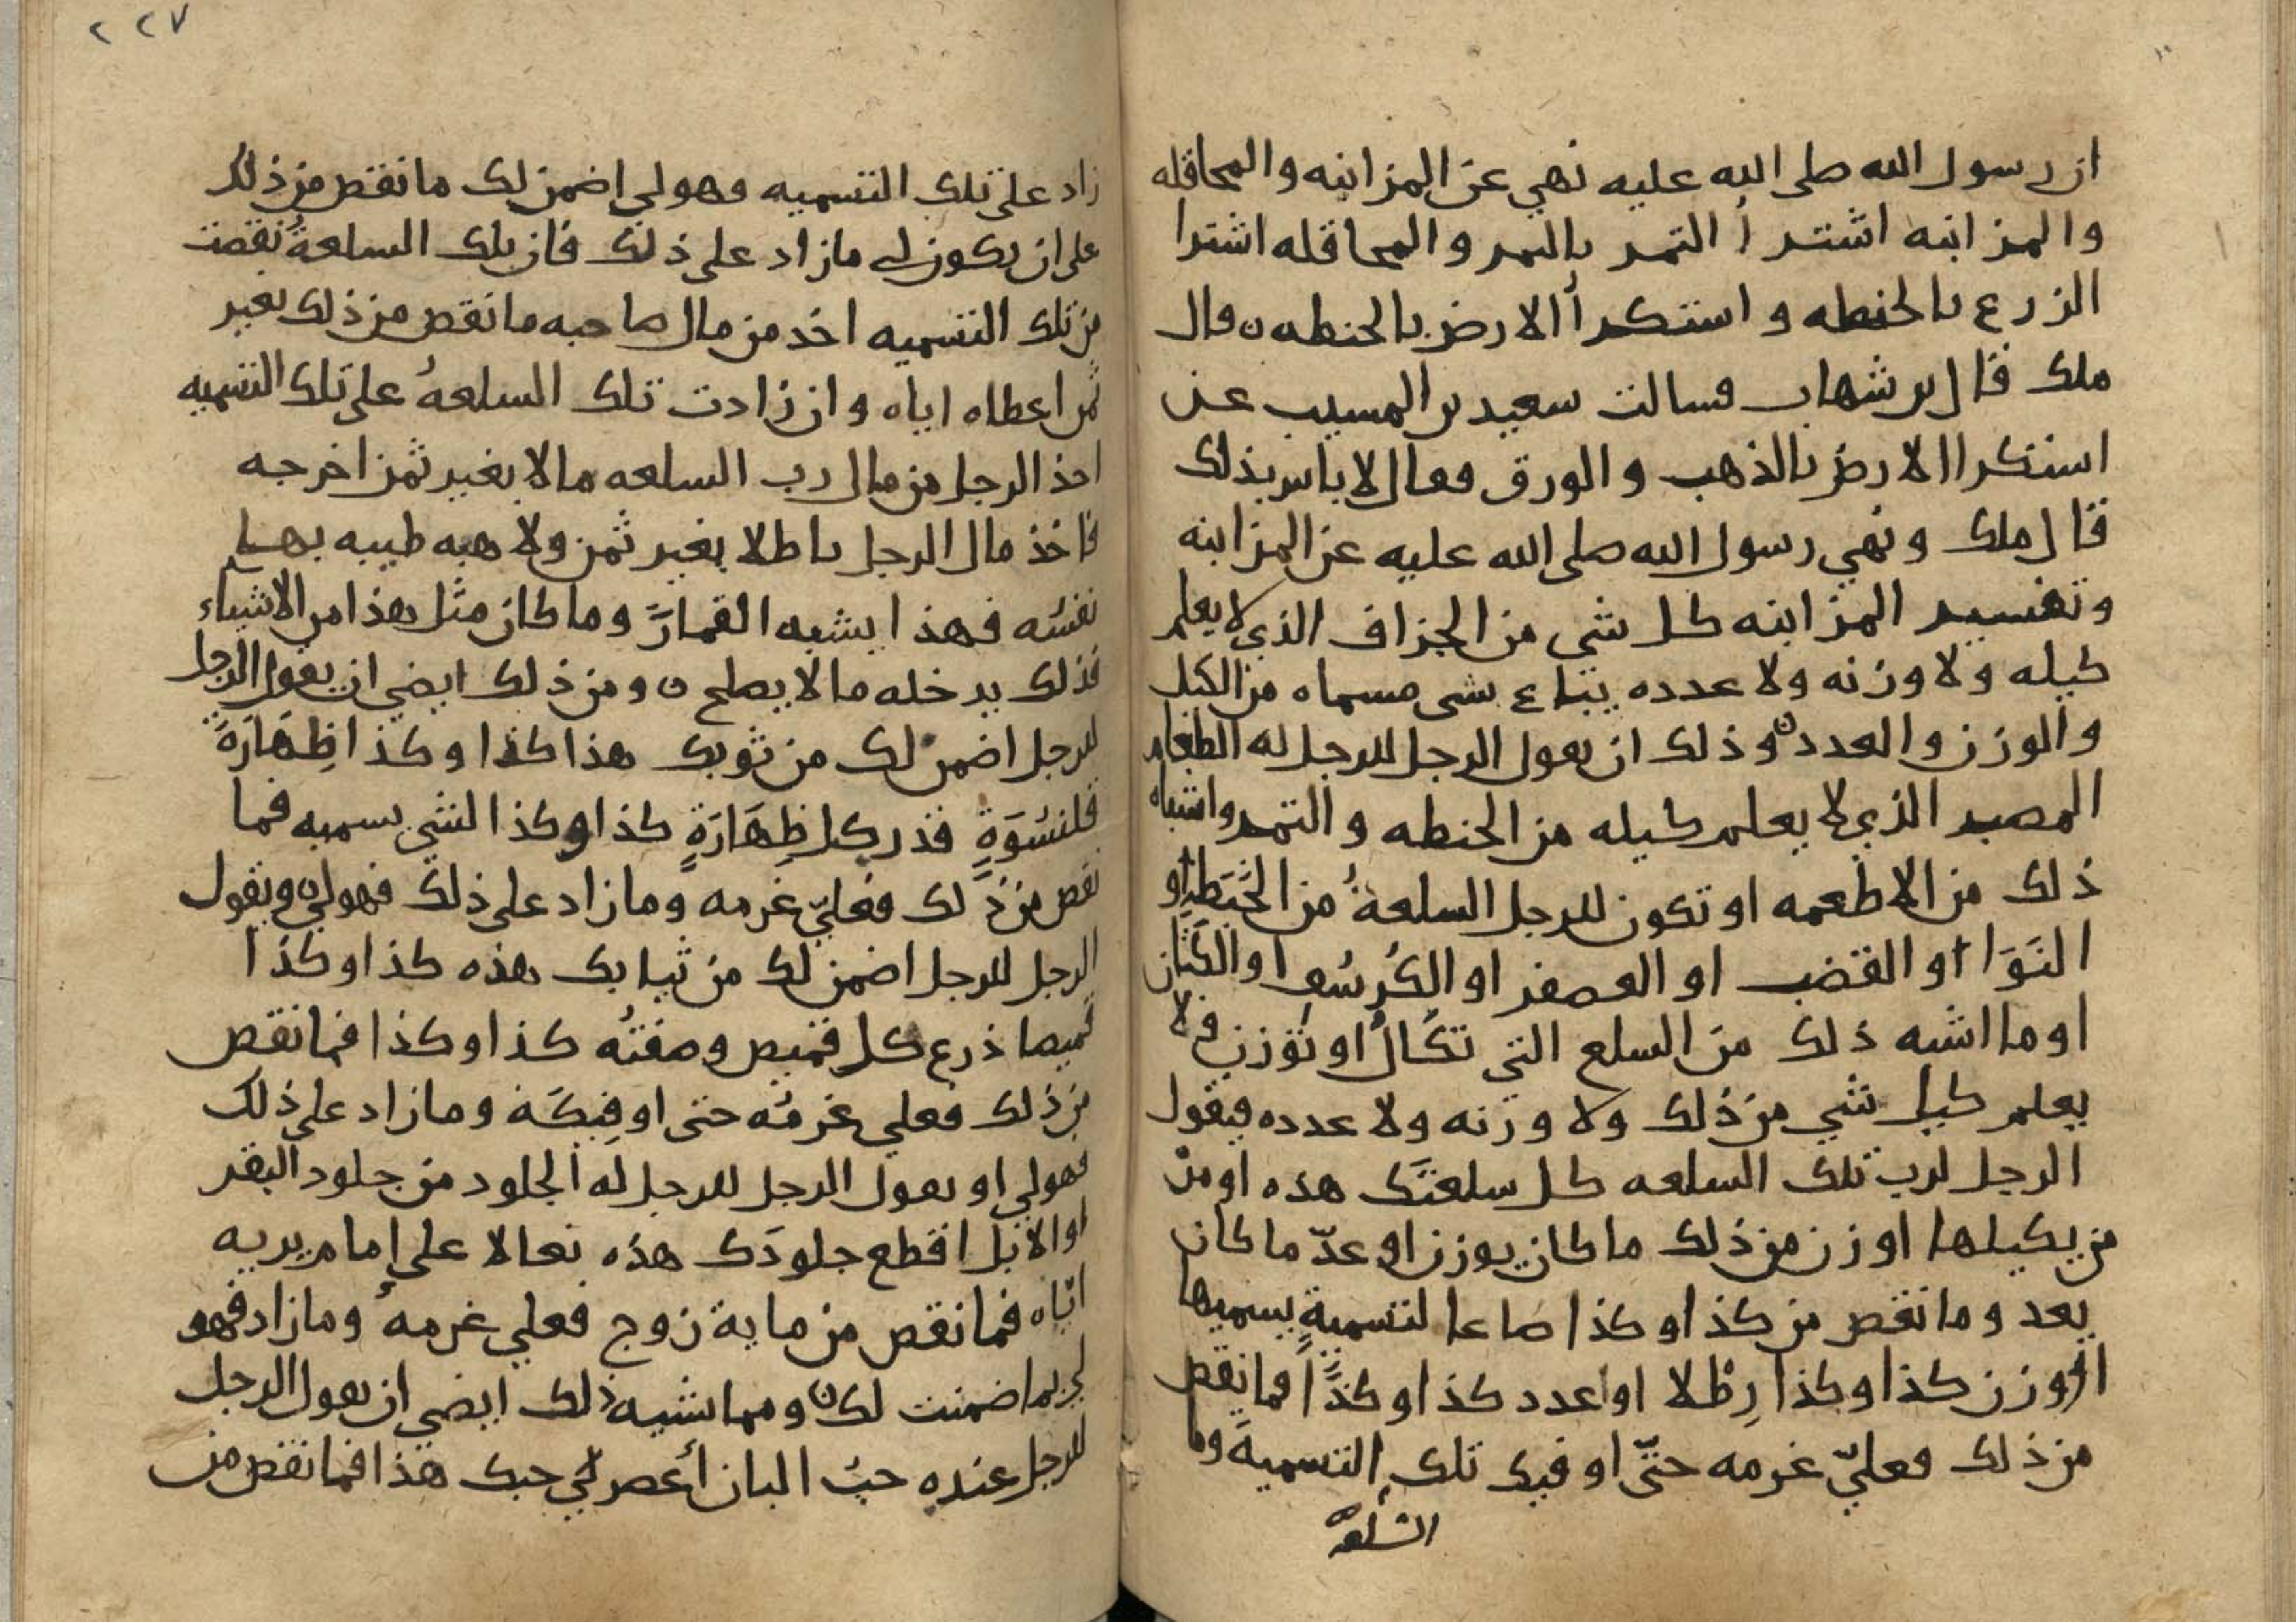 ان رسول الله صلى الله عليه نهي عن المزابنه والمحاقله
والمزابنه اشترا التمر بالتمر والمحاقله اشترا
الزرع بالحنطه واستكرا الارض بالحنطه ٥ قال
ملك قال بن شهاب فسالت سعيد بن المسيب عن
استكرا الارض بالذهب والورق فقال لا باس بذلك
قال ملك ونهي رسول الله صلى الله عليه عن المزابنه
وتفسير المزابنه كل شي من الجزاف الذي لا يعلم
كيله ولا وزنه ولا عدده يبتاع بشي مسماه من الكيل
والوزن والعدد ٥ وذلك ان يقول الرجل للرجل له الطعام
المصبر الذي لا يعلم كيله من الحنطه والتمر واشباه
ذلك من الاطعمه او تكون للرجل السلعةُ من الخَبَطِ او
النَوَا او القضب او العصفر او الكُرسُف او الكتان
او ما اشبه ذلك من السلع التي تكالُ او توزن فلا
يعلم كيل شي من ذلك ولا وزنه ولا عدده فيقول
الرجل لرب تلك السلعه كل سلعتَك هذه او مرْ
من يكيلها او زن من ذلك ما كان يوزن او عدّ ما كان
يعد وما نقص من كذا وكذا صاعا لتسميةٍ يسميها
او وزن كذا وكذا رِطْلا او عدد كذا وكذا فما نقص
من ذلك فعليّ غرمه حتّى اوفيك تلك التسميةَ وما
السلعة
٢٢٧
زاد على تلك التسميه فهو لي اضمن لك ما نقص من ذلك
على ان يكون لي ما زاد على ذلك فان تلك السلعةُ نقصت
من تلك التسميه اخذ من مال صاحبه ما نقص من ذلك بغير
ثمن اعطاه اياه وان زادت تلك السلعهُ على تلك التسميه
اخذ الرجل من مال رب السلعه مالا بغير ثمن اخرجه
فاخذ مال الرجل باطلا بغير ثمن ولا هبه طيبه بها
نفسُه فهذا يشبه القمارَ وما كان مثل هذا من الاشياء
فذلك يدخله ما لا يصلح ٥ ومن ذلك ايضي ان يقول الرجل
للرجل اضمن لك من ثوبك هذا كذا وكذا ظِهَارَةَ
قلنسُوَةٍ قدر كل ظِهَارَةٍ كذا وكذا لشي يسميه فما
نقص من ذلك فعليّ غرمه وما زاد على ذلك فهو لي ٥ ويقول
الرجل للرجل اضمن لك من ثيابك هذه كذا وكذا
قميصا ذرع كل قميص وصفتُه كذا وكذا فما نقص
من ذلك فعلي غرمُه حتى اوفيكَه وما زاد على ذلك
فهو لي او يقول الرجل للرجل له الجلود من جلود البقر
او الابل اقطع جلودَك هذه نعالا على إمام يريه
اياه فما نقص من ماية زوج فعلي غرمهُ وما زاد فهو
لي بما ضمنت لك ٥ ومما يشبه ذلك ايضي ان يقول الرجل
للرجل عنده حبُ البان أعصر لي حبك هذا فما نقص من